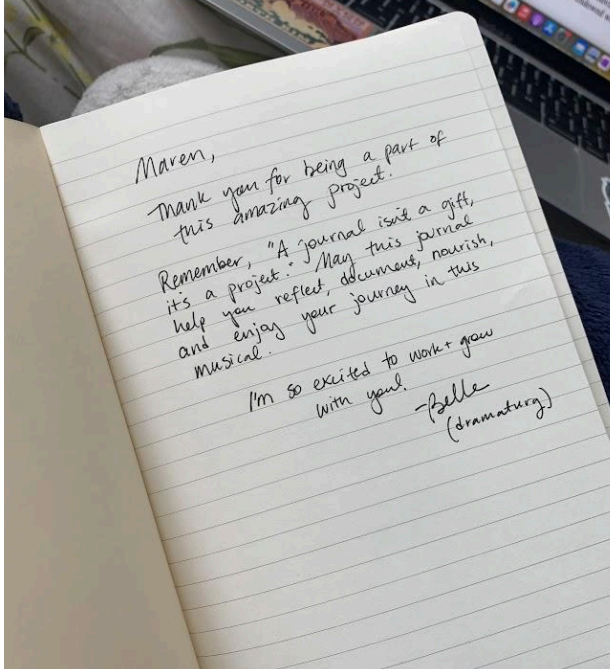 Maren,
Thank you for being a part of
this amazing project.
Remember, "A journal isn't a gift,
it's a project." May this journal
help you reflect, document, nourish,
and enjoy your journey in this
musical.
I'm so excited to work + grow
with you!
-Belle
(dramaturg)